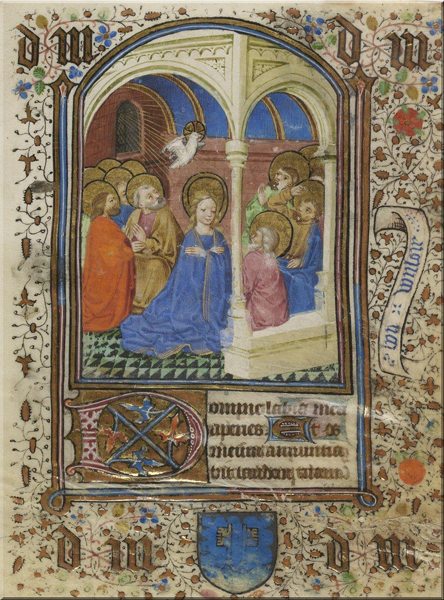 d m d m
Domine labia mea
aperies Et os
meum annuntia
bit laudem tuam
d m d m